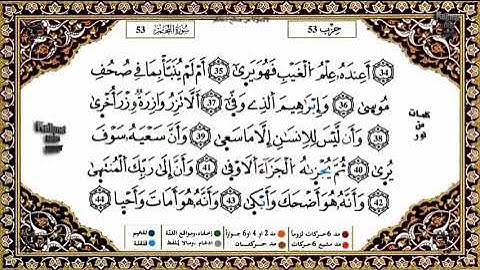 حزب 53
سُورَةُ النَّجْمِ 53
34 أَعِندَهُۥ عِلْمُ الْغَيْبِ فَهُوَ يَرَىٰٓ 35 أَمْ لَمْ يُنَبَّأْ بِمَا فِي صُحُفِ
مُوسَىٰ 36 وَإِبْرَٰهِيمَ الَّذِي وَفَّىٰٓ 37 أَلَّا تَزِرُ وَازِرَةٌ وِزْرَ أُخْرَىٰ
38 وَأَن لَّيْسَ لِلْإِنسَٰنِ إِلَّا مَا سَعَىٰ 39 وَأَنَّ سَعْيَهُۥ سَوْفَ
يُرَىٰ 40 ثُمَّ يُجْزَىٰهُ الْجَزَآءَ الْأَوْفَىٰ 41 وَأَنَّ إِلَىٰ رَبِّكَ الْمُنتَهَىٰ
42 وَأَنَّهُۥ هُوَ أَضْحَكَ وَأَبْكَىٰ 43 وَأَنَّهُۥ هُوَ أَمَاتَ وَأَحْيَا 44
كلمات
من
نور
مد 6 حركات لزوما
مد 2 او 4 او 6 جوازا
إخفاء، ومواقع الغنة
تفخيم
مد مشبع 6 حركات
مد حركتان
إدغام، ومالا يلفظ
قلقلة